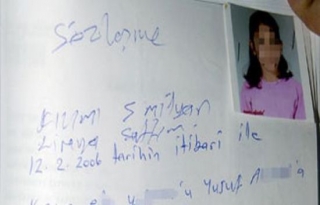 Sözleşme
Kızımı 5 milyar
Liraya Sattım
12.2.2006 tarihin itibari ile
Yusuf A